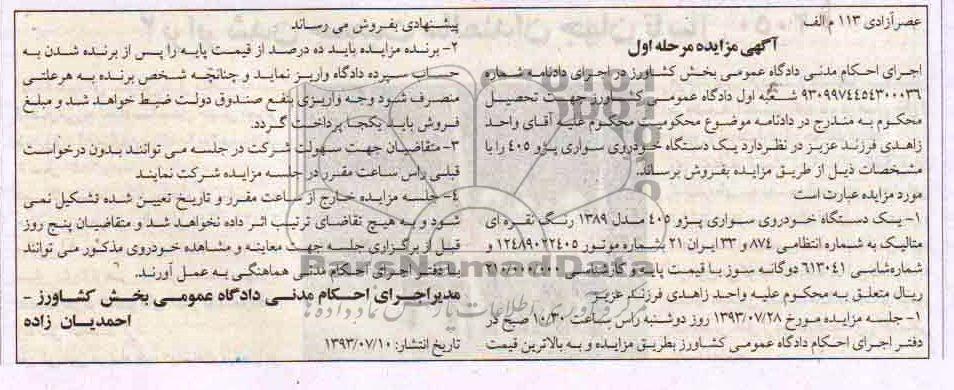 عصرآزادی ۱۱۳ م الف
آگهی مزایده مرحله اول
اجرای احکام مدنی دادگاه عمومی بخش کشاورز در اجرای دادنامه شماره
۹۳۰۹۹۷۴۴۵۴۳۰۰۰۳۶ شعبه اول دادگاه عمومی کشاورز جهت تحصیل
محکوم به مندرج در دادنامه موضوع محکومیت محکوم علیه آقای واحد
زاهدی فرزند عزیز در نظر دارد یک دستگاه خودروی سواری پژو ۴۰۵ را با
مشخصات ذیل از طریق مزایده بفروش برساند.
مورد مزایده عبارت است
۱- یک دستگاه خودروی سواری پژو ۴۰۵ مدل ۱۳۸۹ رنگ نقره ای
متالیک به شماره انتظامی ۸۷۴ و ۳۳ ایران ۲۱ بشماره موتور ۱۲۴۸۹۰۲۲۴۰۵ و
شماره شاسی ۶۱۳۰۴۱ دوگانه سوز با قیمت پایه و کارشناسی ۲۱۰/۰۰۰/۰۰۰
ریال متعلق به محکوم علیه واحد زاهدی فرزند عزیز
۱- جلسه مزایده مورخ ۱۳۹۳/۰۷/۲۸ روز دوشنبه راس ساعت ۱۰/۳۰ صبح در
دفتر اجرای احکام دادگاه عمومی کشاورز بطریق مزایده و به بالاترین قیمت
پیشنهادی بفروش می رساند
۲- برنده مزایده باید ده درصد از قیمت پایه را پس از برنده شدن به
حساب سپرده دادگاه واریز نماید و چنانچه شخص برنده به هرعلتی
منصرف شود وجه واریزی بنفع صندوق دولت ضبط خواهد شد و مبلغ
فروش باید یکجا پرداخت گردد.
۳- متقاضیان جهت سهولت شرکت در جلسه می توانند بدون درخواست
قبلی راس ساعت مقرر در جلسه مزایده شرکت نمایند
۴- جلسه مزایده خارج از ساعت مقرر و تاریخ تعیین شده تشکیل نمی
شود و به هیچ تقاضای ترتیب اثر داده نخواهد شد و متقاضیان پنج روز
قبل از برگزاری جلسه جهت معاینه و مشاهده خودروی مذکور می توانند
با دفتر اجرای احکام مدنی هماهنگی به عمل آورند.
مدیر اجرای احکام مدنی دادگاه عمومی بخش کشاورز -
احمدیان زاده
تاریخ انتشار: ۱۳۹۳/۰۷/۱۰